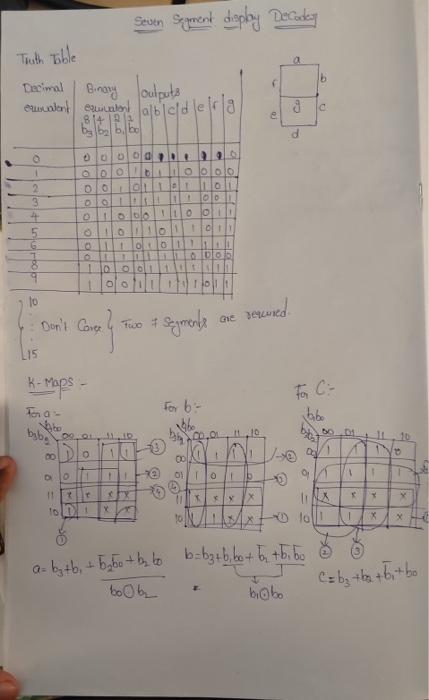 Seven Segment display Decoder
Truth Table
Decimal equivalent | Binary equivalent | Outputs
8 4 2 1
b3 b2 b1 b0 | a b c d e f g
0 | 0 0 0 0
1 | 0 0 0 1 | 0 1 1 0 0 0 0
2 | 0 0 1 0 | 1 1 0 1 1 0 1
3 | 0 0 1 1 | 1 1 1 1 0 0 1
4 | 0 1 0 0 | 0 1 1 0 0 1 1
5 | 0 1 0 1 | 1 0 1 1 0 1 1
6 | 0 1 1 0 | 1 0 1 1 1 1 1
7 | 0 1 1 1 | 1 1 1 0 0 0 0
8 | 1 0 0 0 | 1 1 1 1 1 1 1
9 | 1 0 0 1 | 1 1 1 1 0 1 1
a
f b
g
e c
d
10
: Don't Care
15
Two 7 segments are required.
K-Maps -
For a :-
b1b0
b3b2 00 01 11 10
00 1 0 1 1
01 0 1 1 1
11 x x x x
10 1 1 x x
a = b3 + b1 + b̅2b̅0 + b2b0
b0⊙b2
For b :-
b1b0
b3b2 00 01 11 10
00 1 1 1 1
01 1 0 1 0
11 x x x x
10 1 1 x x
b = b3 + b1b0 + b̅2 + b̅1b̅0
b1⊙b0
For C :-
b1b0
b3b2 00 01 11 10
00 1 1 1 0
01 1 1 1 1
11 x x x x
10 1 1 x x
C = b3 + b2 + b̅1 + b0